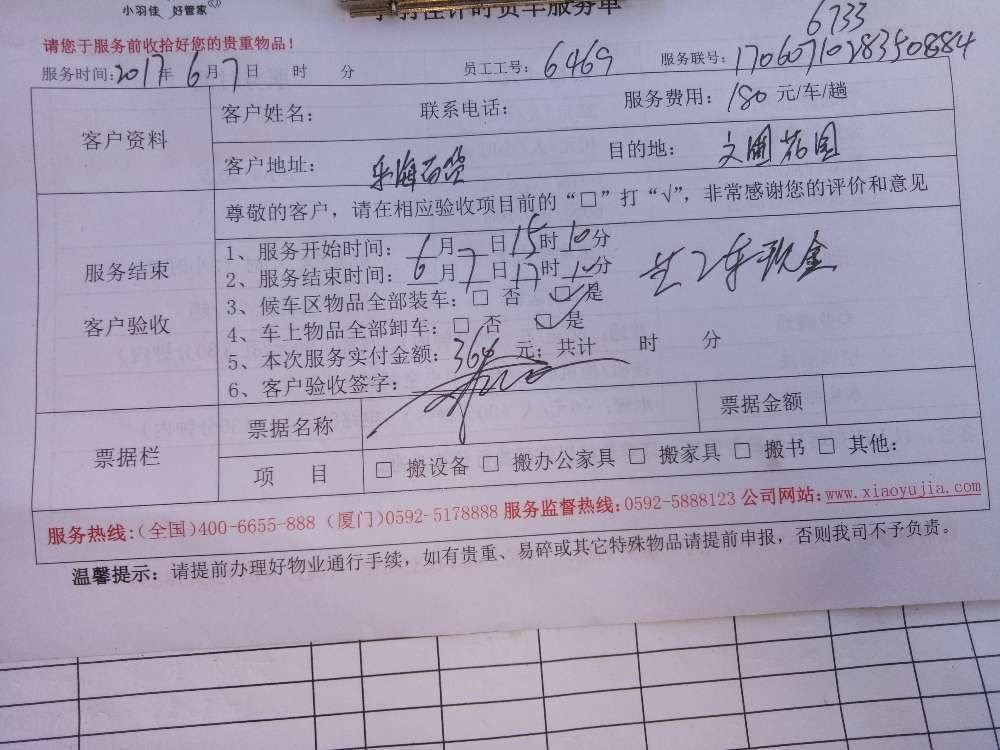 小羽佳 好管家
小羽佳计时货车服务单
6733
请您于服务前收拾好您的贵重物品！
服务时间：2017年 6月7日 时 分 员工工号：6469 服务联号：17060710283350884
客户资料
客户姓名： 联系电话： 服务费用：180元/车/趟
客户地址：乐海百货 目的地：文圃花园
尊敬的客户，请在相应验收项目前的“□”打“√”，非常感谢您的评价和意见
服务结束
客户验收
1、服务开始时间：6月7日15时10分
2、服务结束时间：6月7日17时1分
共2车现金
3、候车区物品全部装车：□ 否 ☑是
4、车上物品全部卸车：□ 否 ☑是
5、本次服务实付金额：360元；共计 时 分
6、客户验收签字：
票据栏
票据名称 票据金额
项 目 □ 搬设备 □ 搬办公家具 □ 搬家具 □ 搬书 □ 其他：
服务热线：（全国）400-6655-888（厦门）0592-5178888 服务监督热线：0592-5888123 公司网站：www.xiaoyujia.com
温馨提示：请提前办理好物业通行手续，如有贵重、易碎或其它特殊物品请提前申报，否则我司不予负责。